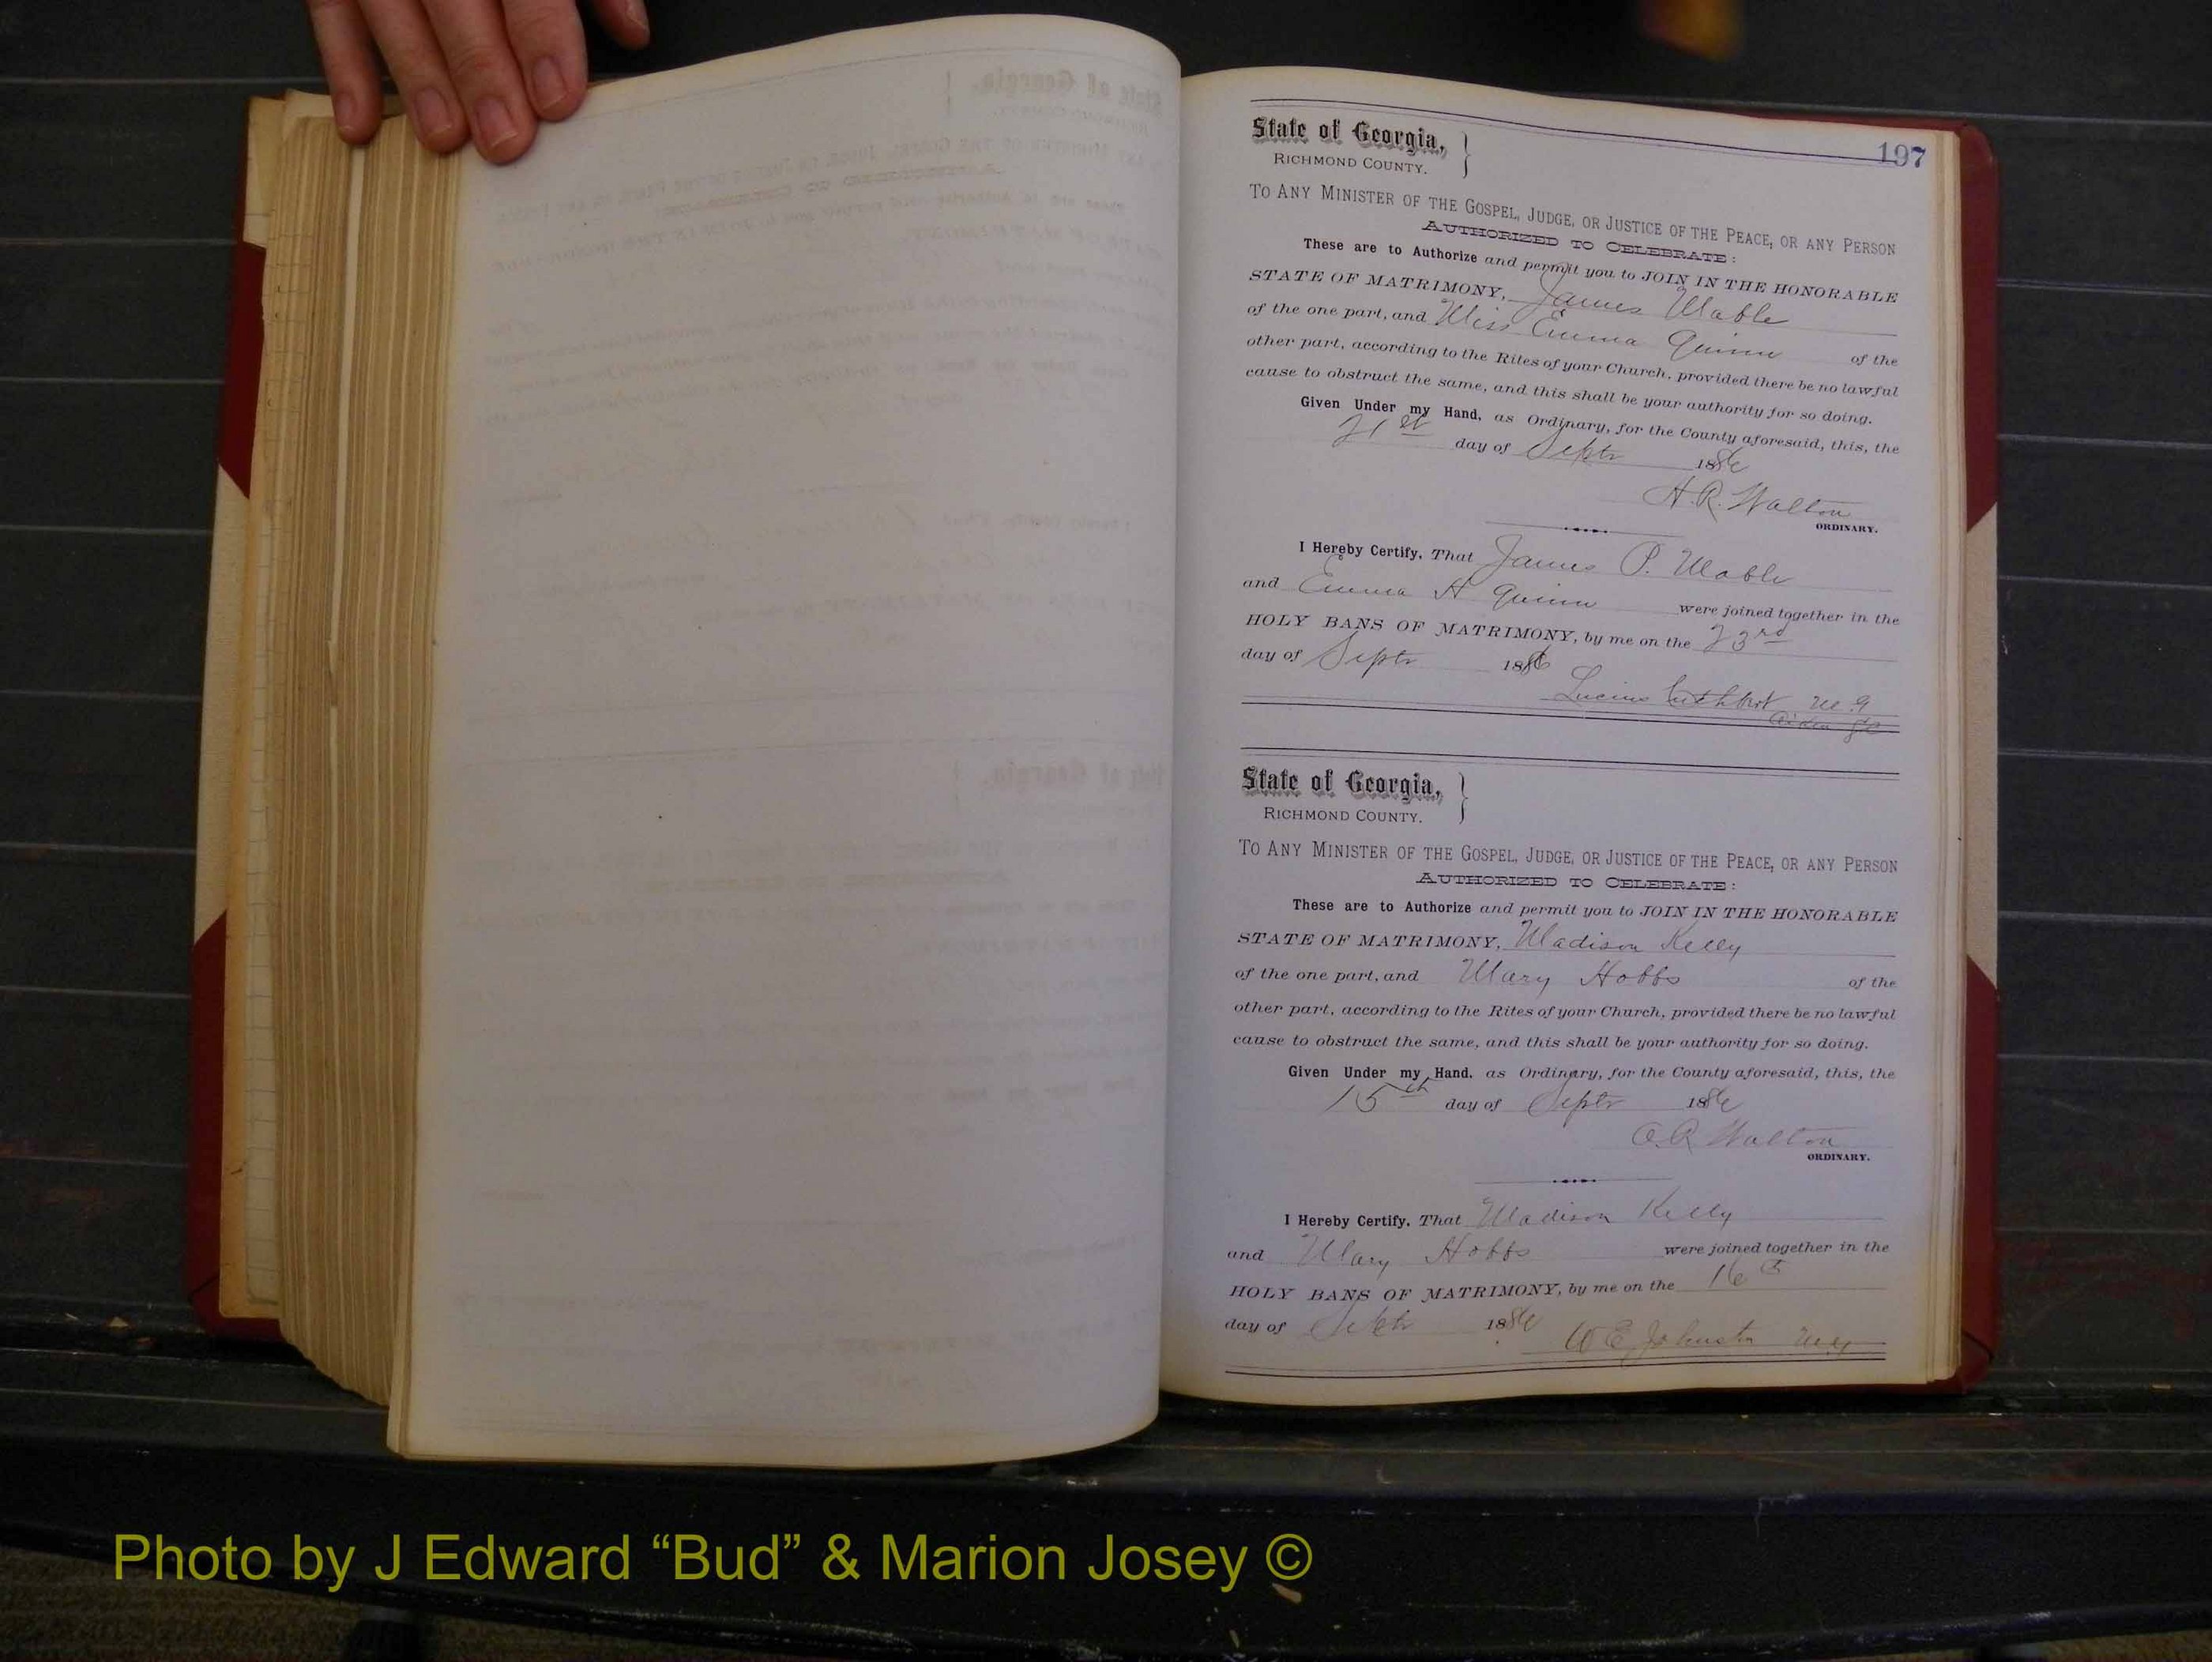 197
State of Georgia,
RICHMOND COUNTY.
TO ANY MINISTER OF THE GOSPEL, JUDGE, OR JUSTICE OF THE PEACE, OR ANY PERSON
AUTHORIZED TO CELEBRATE:
These are to Authorize and permit you to JOIN IN THE HONORABLE
STATE OF MATRIMONY, James Mable
of the one part, and Miss Emma Quinn of the
other part, according to the Rites of your Church, provided there be no lawful
cause to obstruct the same, and this shall be your authority for so doing.
Given Under my Hand, as Ordinary, for the County aforesaid, this, the
21st day of Septr 1886
H.R. Walton
ORDINARY.
I Hereby Certify, That James P. Mable
and Emma H Quinn were joined together in the
HOLY BANS OF MATRIMONY, by me on the 23rd
day of Septr 1886
Lucius Cuthbert M.G
Aiken SC
State of Georgia,
RICHMOND COUNTY.
TO ANY MINISTER OF THE GOSPEL, JUDGE, OR JUSTICE OF THE PEACE, OR ANY PERSON
AUTHORIZED TO CELEBRATE:
These are to Authorize and permit you to JOIN IN THE HONORABLE
STATE OF MATRIMONY, Madison Kelly
of the one part, and Mary Hobbs of the
other part, according to the Rites of your Church, provided there be no lawful
cause to obstruct the same, and this shall be your authority for so doing.
Given Under my Hand, as Ordinary, for the County aforesaid, this, the
15th day of Septr 1886
H.R. Walton
ORDINARY.
I Hereby Certify, That Madison Kelly
and Mary Hobbs were joined together in the
HOLY BANS OF MATRIMONY, by me on the 16th
day of Septr 1886
W E Johnston M.G
Photo by J Edward “Bud” & Marion Josey ©